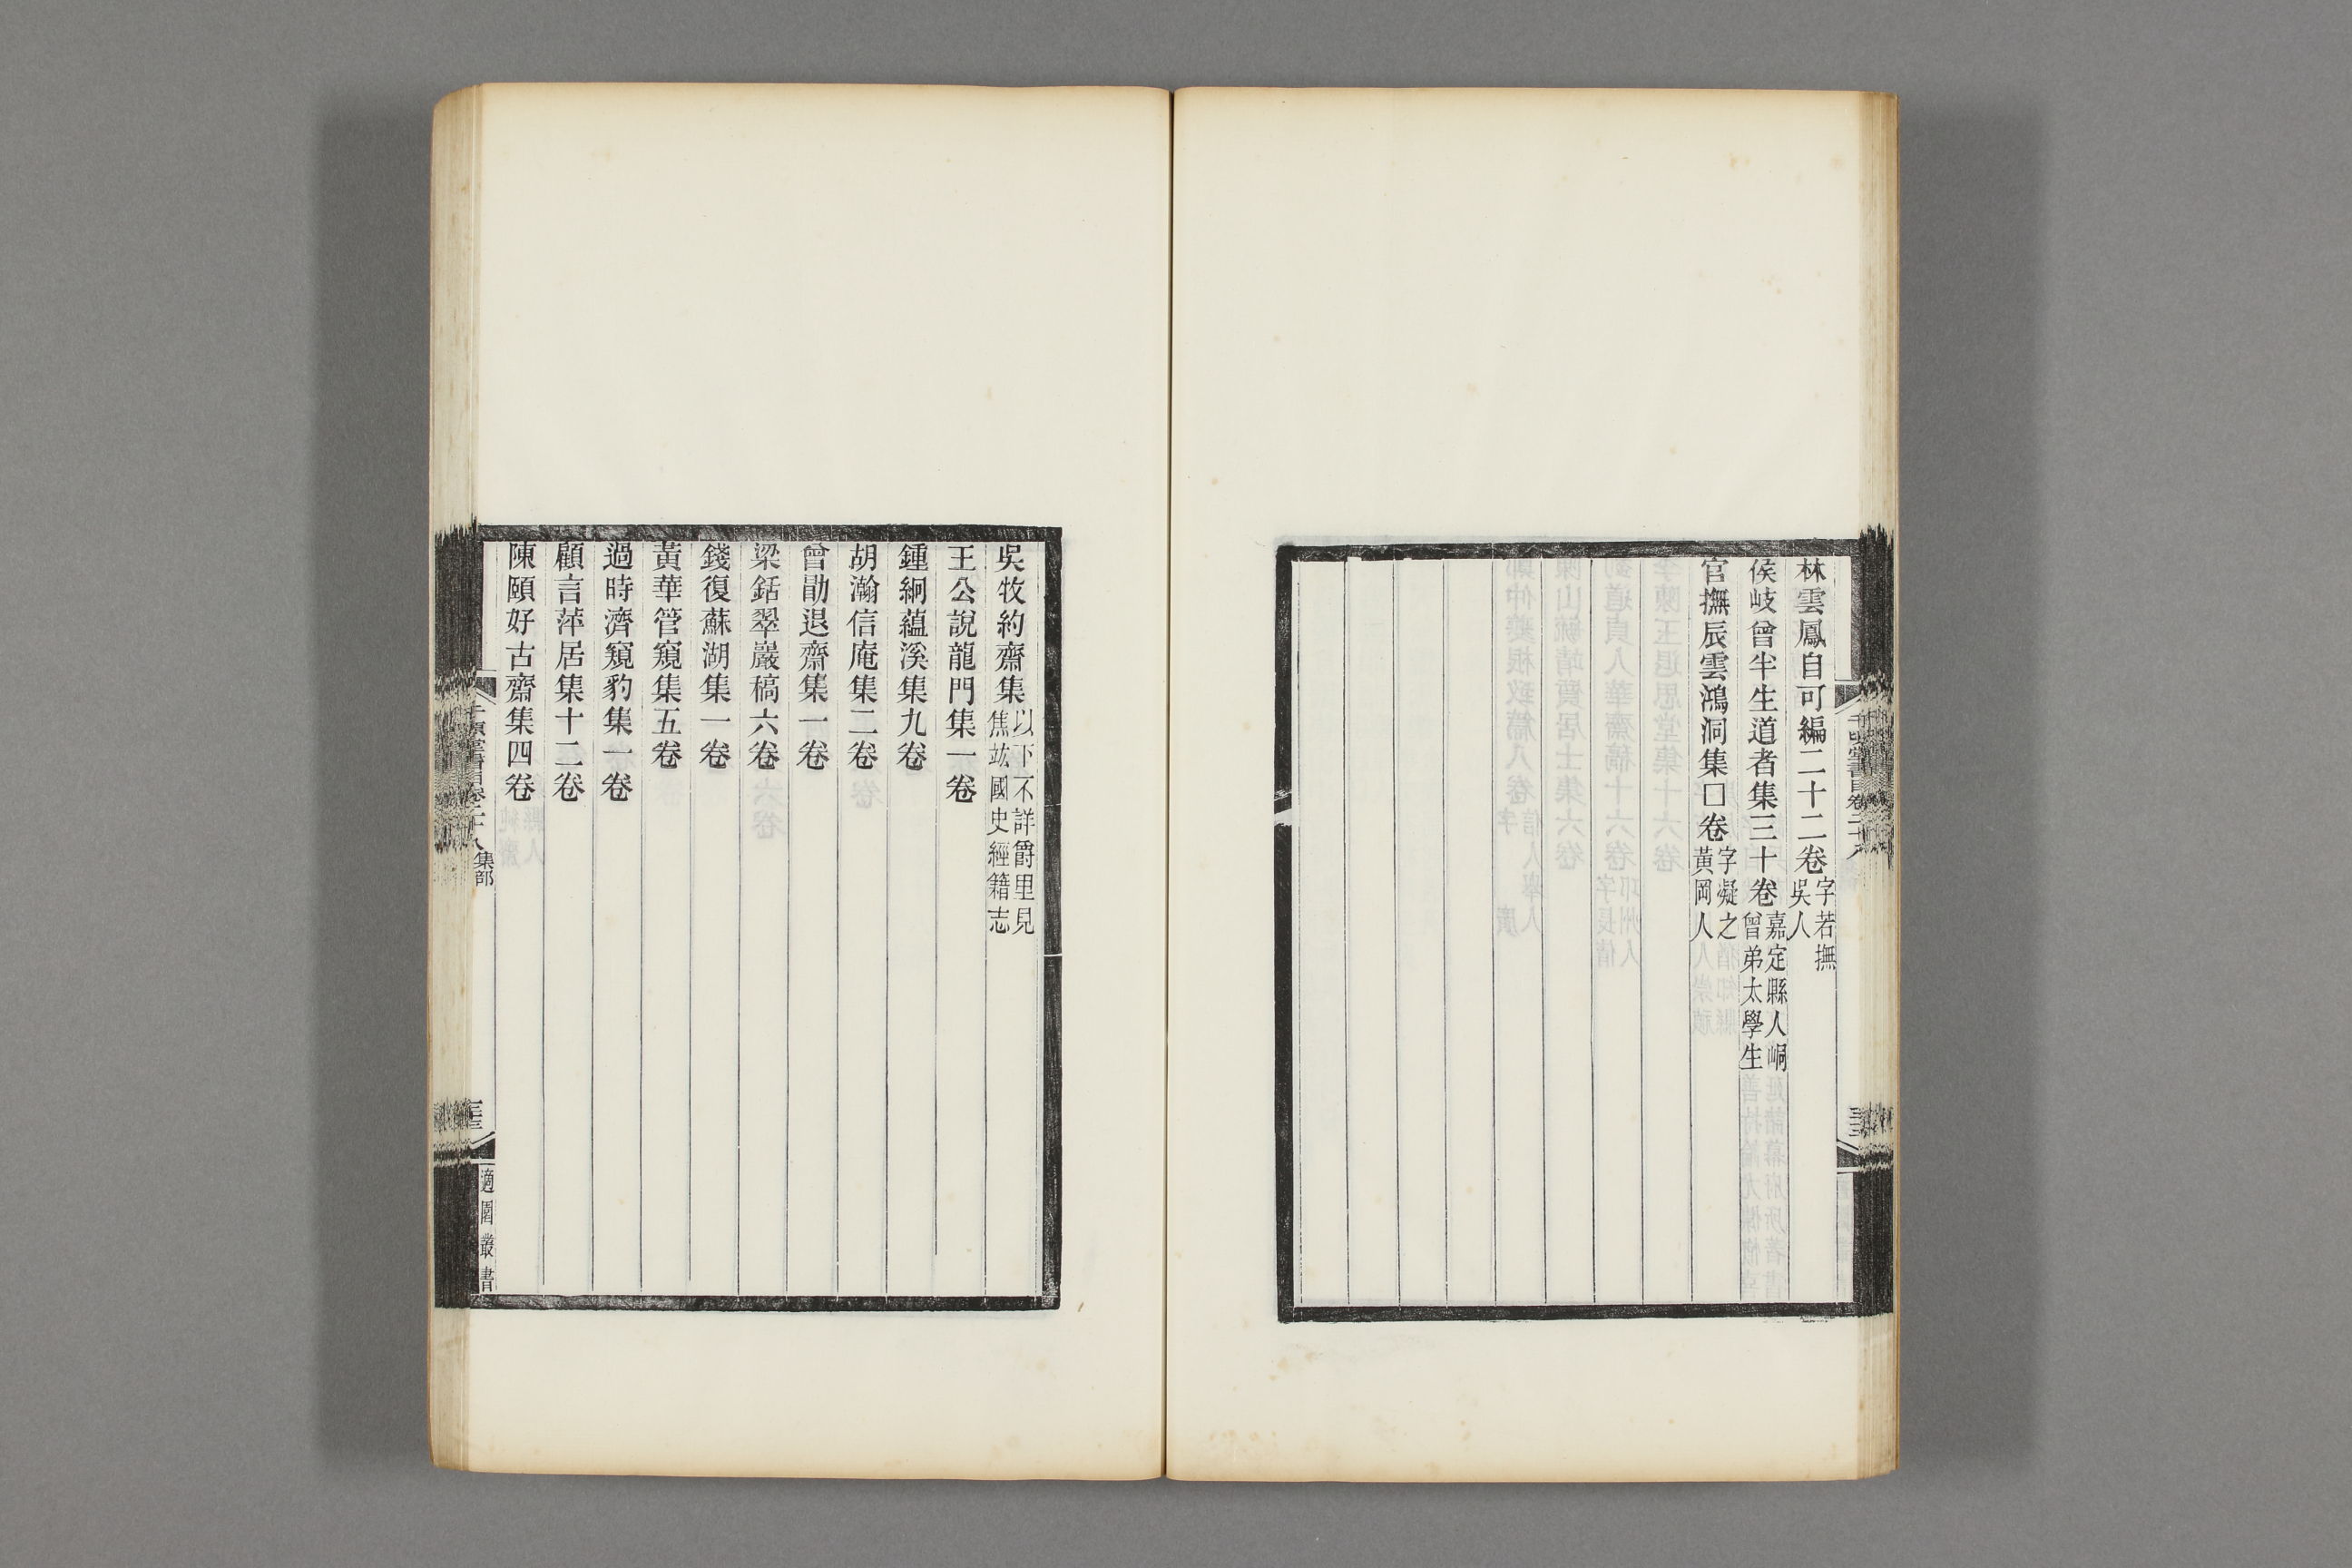 林雲鳳自可編二十二卷字若撫吳人
侯岐曾半生道者集三十卷嘉定縣人峒曾弟太學生
官撫辰雲鴻洞集□卷字凝之黃岡人
吳牧約齋集以下不詳爵里見焦竑國史經籍志
王公說龍門集一卷
鍾絅蘊溪集九卷
胡瀚信庵集二卷
曾勖退齋集一卷
梁銛翠巖稿六卷
錢復蘇湖集一卷
黃華管窺集五卷
過時濟窺豹集一卷
顧言萍居集十二卷
陳頤好古齋集四卷
千頃堂書目卷二十八集部
適園叢書